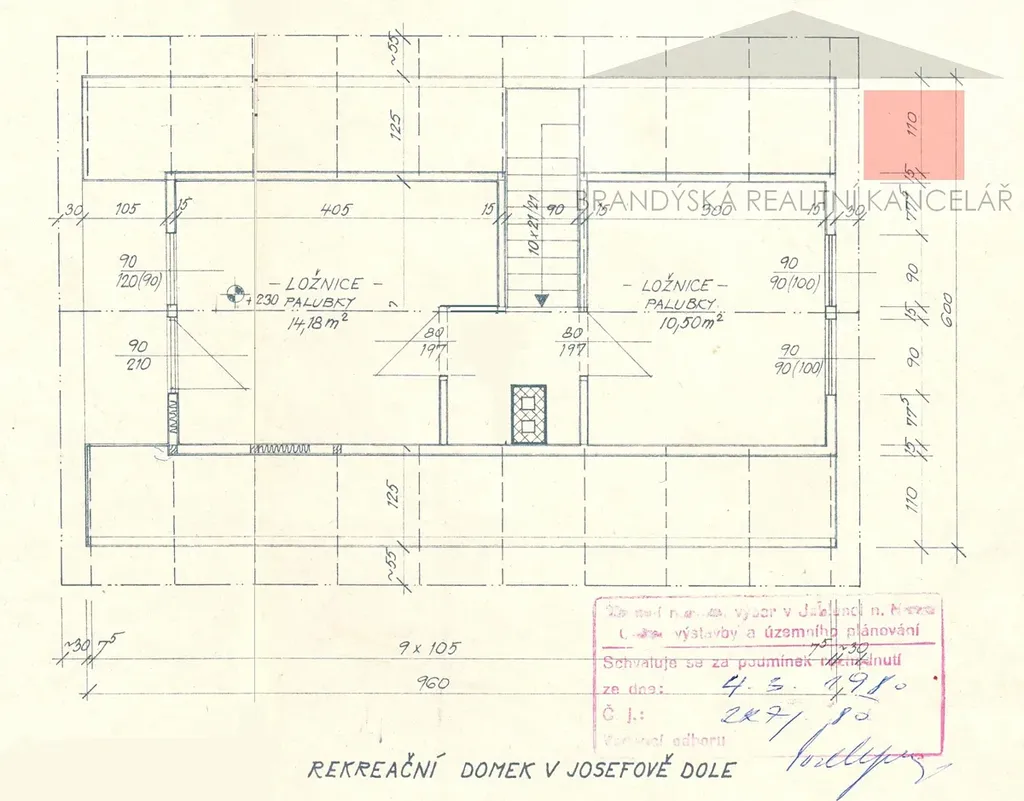 ~55
125
110
15
BRANDÝSKÁ REALITNÍ KANCELÁŘ
30 105 15 405 15 90 15 300 15 30
10x21/21
77⁵
90
120(90)
+230
– LOŽNICE –
PALUBKY
14,18 m²
– LOŽNICE –
PALUBKY
10,50 m²
90
90(100)
90
15
600
90
210
80
197
80
197
90
90(100)
90
77⁵
15
125
110
~55
výbor v n.
výstavby a územního plánování
Schvaluje se za podmínek rozhodnutí
ze dne: 4. 1980
Č. j.:
odboru
~30 7⁵ 9 x 105 7⁵ ~30
960
REKREAČNÍ DOMEK V JOSEFOVĚ DOLE